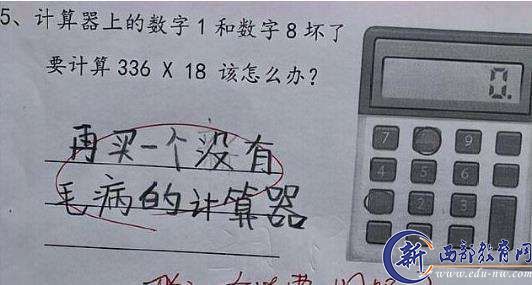 5、计算器上的数字1和数字8坏了
要计算336 X 18 该怎么办?
再买一个没有
毛病的计算器
0.
7
9
4
5
6
2
3
新西部教育网
www.edu-nw.com